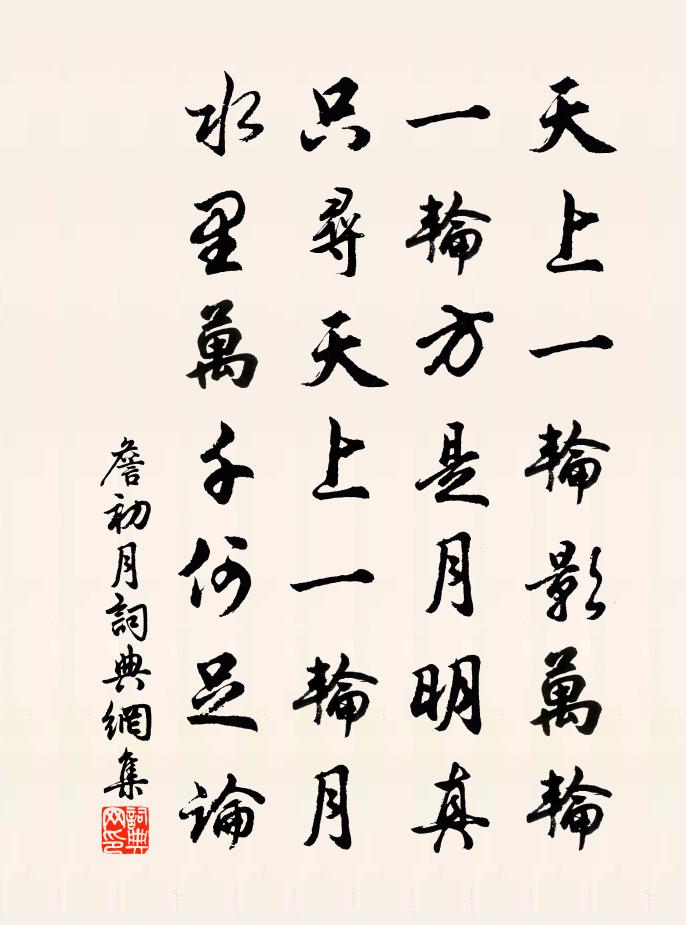 天上一輪影萬輪
一輪方是月明真
只尋天上一輪月
水里萬千何足論
詹初月詞典網集
詞典网印